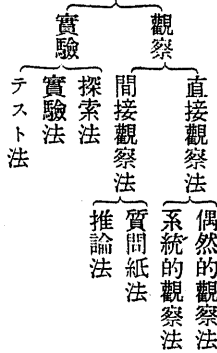 觀察
直接觀察法
偶然的觀察法
系統的觀察法
間接觀察法
質問紙法
推論法
實驗
探索法
實驗法
テスト法